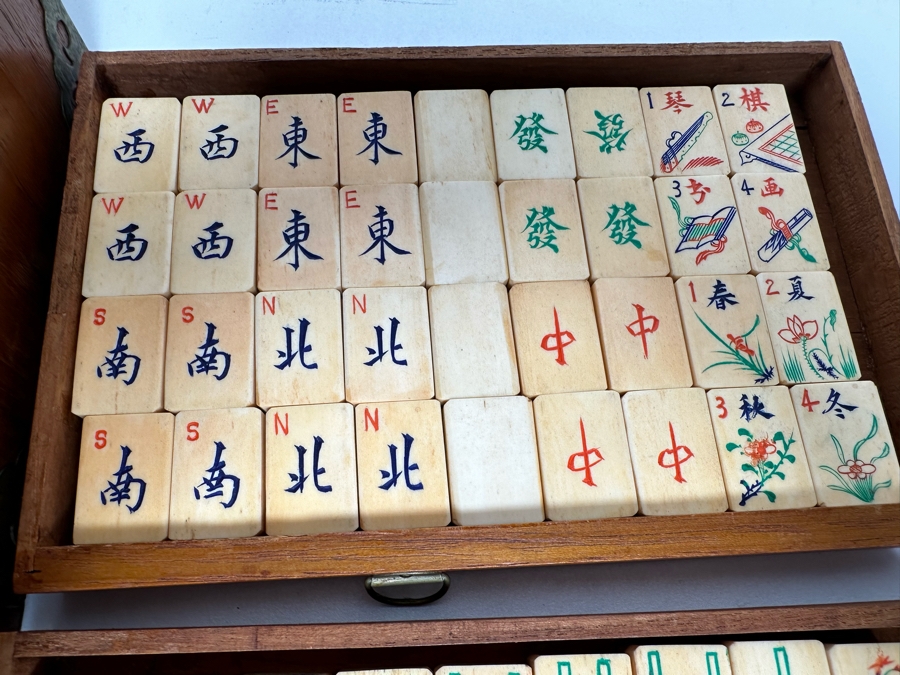 W W E E 1 琴 2 棋
西 西 東 東 發 發
W W E E 3 书 4 画
西 西 東 東 發 發
S S N N 1 春 2 夏
南 南 北 北 中 中
S S N N 3 秋 4 冬
南 南 北 北 中 中